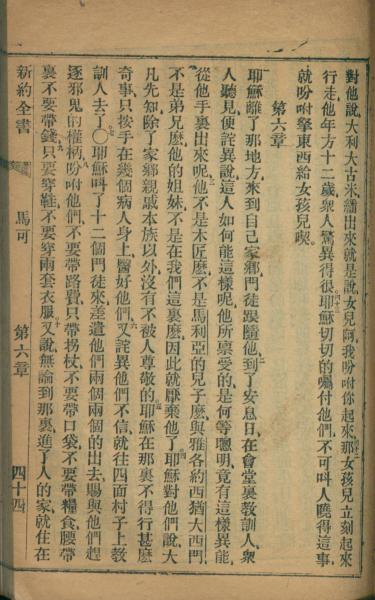 對他說、大利大古米、繙出來就是說、女兒阿、我吩咐你起來、那女孩兒立刻起來
行走、他年方十二歲、衆人驚異得很、耶穌切切的囑付他們、不可叫人曉得這事、
就吩咐拏東西給女孩兒喫。
第六章
耶穌離了那地方、來到自己家鄉、門徒跟隨他、到了安息日、在會堂裏教訓人、衆
人聽見便詫異說、這人如何能這樣呢、他所禀受的、是何等聰明、竟有這樣異能、
從他手裏出來呢、他不是木匠麽、不是馬利亞的兒子麽、與雅各約西猶大西門、
不是弟兄麽、他的姐妹不是在我們這裏麽、因此就厭棄他了、耶穌對他們說、大
凡先知、除了家鄉親戚本族以外、沒有不被人尊敬的、耶穌在那裏不得行甚麽
奇事、只按手在幾個病人身上、醫好他們、又詫異他們不信、就往四面村子上教
訓人去了〇耶穌叫了十二個門徒來、差遣他們兩個兩個的出去、賜與他們趕
逐邪鬼的權柄、吩咐他們、不要帶路費、只帶拐杖、不要帶口袋、不要帶糧食、腰帶
裏不要帶錢、只要穿鞋、不要穿兩套衣服、又說、無論到那裏、進了人的家、就住在
新約全書 馬可 第六章 四十四